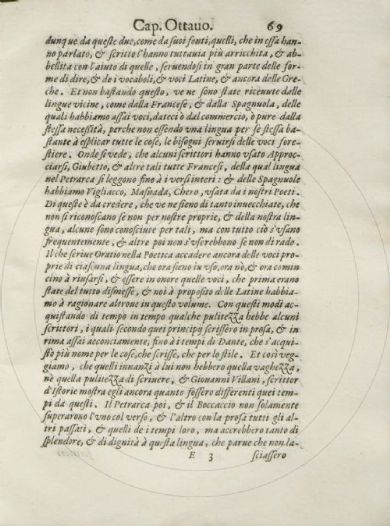 Cap. Ottauo. 69
dunque da queste due, come da suoi fonti, quelli, che in essa han-
no parlato, & scritto l'hanno tuttauia più arricchita, & ab-
bellita con l'aiuto di quelle, seruendosi in gran parte delle for-
me di dire, & de i vocaboli, & voci Latine, & ancora delle Gre-
che. Et non bastando questo, ve ne sono state riceuute dalle
lingue vicine, come dalla Francese, & dalla Spagnuola, delle
quali habbiamo assai voci, dateci ò dal commercio, ò pure dalla
stessa necessità, perche non essendo vna lingua per se stessa ba-
stante à esplicar tutte le cose, le bisogni seruirsi delle voci fore-
stiere. Onde si vede, che alcuni scrittori hanno vsato Approc-
ciarsi, Giubetto, & altre tali tutte Francesi, della qual lingua
nel Petrarca si leggono fino à i versi interi: & delle Spagnuole
habbiamo Vigliacco, Masnada, Chero, vsata da i nostri Poeti.
Di queste è da credere, che ve ne sieno di tanto inuecchiate, che
non si riconoscano se non per nostre proprie, & della nostra lin-
gua, alcune sono conosciute per tali, ma con tutto ciò s'vsano
frequentemente, & altre poi non s'vserebbono se non di rado.
Il che scriue Oratio nella Poetica accadere ancora delle voci pro-
prie di ciascuna lingua, che ora sieno in vso, ora nò, & ora comin
cino à riusarsi, & essere in onore quelle voci, che prima erano
state del tutto dismesse, & noi à proposito delle Latine habbia-
mo à ragionare altroue in questo volume. Con questi modi ac-
quistando di tempo in tempo qualche pulitezza hebbe alcuni
scrittori, i quali secondo quei principij scrissero in prosa, & in
rima assai acconciamente, fino à i tempi di Dante, che s'acqui-
stò più nome per le cose, che scrisse, che per lo stile. Et così veg-
giamo, che quelli innanzi à lui non hebbero quella vaghezza,
nè quella pulitezza di scriuere, & Giouanni Villani, scrittor
d'Istorie mostra egli ancora quanto fossero differenti quei tem-
pi da questi. Il Petrarca poi, & il Boccaccio non solamente
superarono l'vno col verso, & l'altro con la prosa tutti gli al-
tri passati, & quelli de i tempi loro, ma accrebbero tanto di
splendore, & di dignità à questa lingua, che parue che non la-
E 3 sciassero